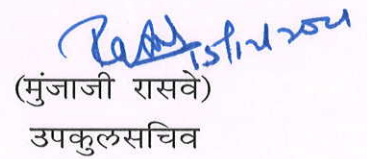 15/12/2021
(मुंजाजी रासवे)
उपकुलसचिव